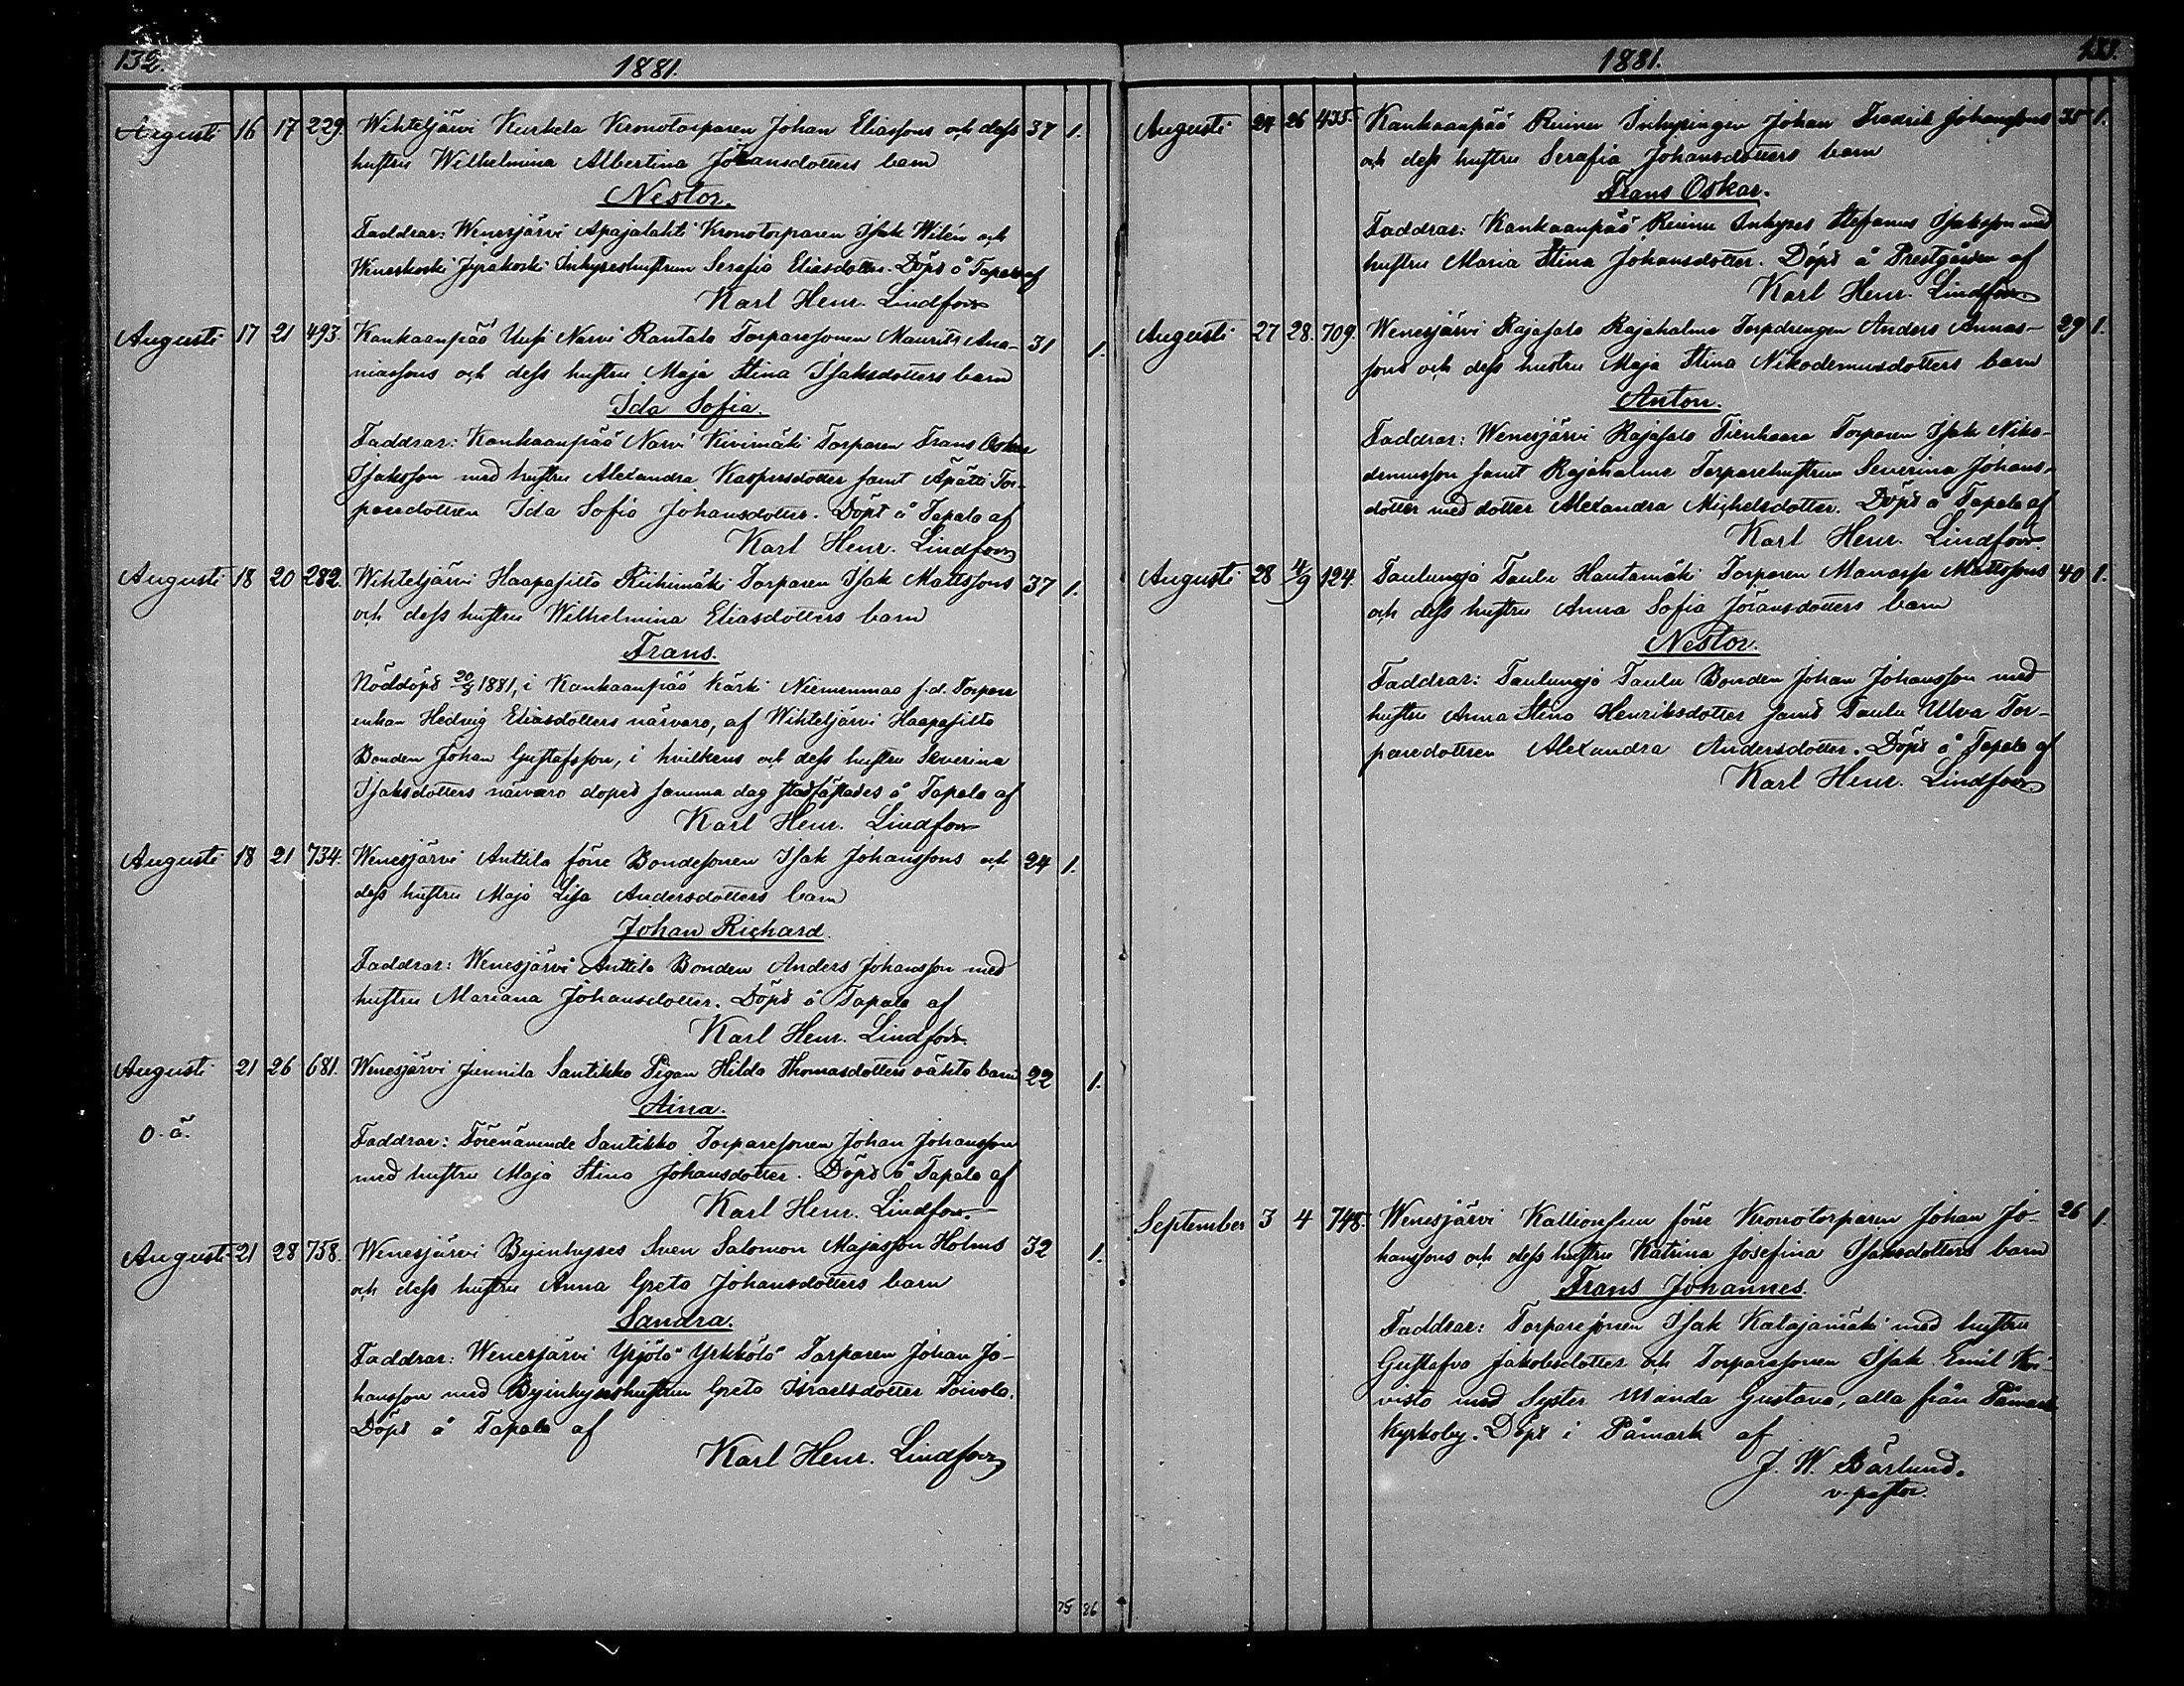 132.
1881.
Augusti 16 17 229. Wihteljärvi Kurkela Kronotorparen Johan Eliassons och dess 37 1.
hustru Wilhelmina Albertina Johansdotters barn
Nestor.
Faddrar: Wenesjärvi Apajalahti Kronotorparen Isak Wilén och
Weneskoski Jyräkoski Inhyseshustrun Serafia Eliasdotter. Döpt å Tapala af
Karl Henr. Lindfors
Augusti 17 21 493. Kankaanpää Uusi Narvi Rantala Torparesonen Maurits Ana- 31 1.
niassons och dess hustru Maja Stina Isaksdotters barn
Ida Sofia.
Faddrar: Kankaanpää Narvi Kivimäki Torparen Frans Oskar
Isaksson med hustru Alexandra Kaspersdotter samt Äpätti Tor-
paredottren Ida Sofia Johansdotter. Döpt å Tapala af
Karl Henr. Lindfors
Augusti 18 20 282. Wihteljärvi Haapasilta Riihimäki Torparen Isak Mattssons 37 1.
och dess hustru Wilhelmina Eliasdotters barn
Frans.
Nöddöpt 20/8 1881, i Kankaanpää Kärki Niemenmaa f.d. Torpare
enkan Hedvig Eliasdotters närvaro, af Wihteljärvi Haapasilta
Bonden Johan Gustafsson, i hvilkens och dess hustru Severina
Isaksdotters närvaro dopet samma dag stadfästades å Tapala af
Karl Henr. Lindfors
Augusti 18 21 734. Wenesjärvi Anttila förre Bondesonen Isak Johanssons och 24 1.
dess hustru Maja Lisa Andersdotters barn
Johan Richard.
Faddrar: Wenesjärvi Anttila Bonden Anders Johansson med
hustru Mariana Johansdotter. Döpt å Tapala af
Karl Henr. Lindfors.
Augusti 21 26 681. Wenesjärvi Junnila Santikko Pigan Hilda Thomasdotters oäkta barn 22 1.
Aina.
o. ä.
Faddrar: Förenämnde Santikko Torparesonen Johan Johansson
med hustru Maja Stina Johansdotter. Döpt å Tapala af
Karl Henr. Lindfors.
Augusti 21 28 758. Wenesjärvi Byinhyses Sven Salomon Majasson Holms 32 1.
och dess hustru Anna Greta Johansdotters barn
Sandra.
Faddrar: Wenesjärvi Yrjölä Yrkkölä Torparen Johan Jo-
hansson med Byinhyseshustrun Greta Israelsdotter Toivola.
Döpt å Tapala af
Karl Henr. Lindfors
75 86
1881.
133.
Augusti 24 26 435. Kankaanpää Ruinu Inhysingen Johan Fredrik Johanssons 35 1.
och dess hustru Serafia Johansdotters barn
Frans Oskar.
Faddrar: Kankaanpää Ruinu Inhyses Stefanus Isaksson med
hustru Maria Stina Johansdotter. Döpt å Prestgården af
Karl Henr. Lindfors.
Augusti 27 28. 709. Wenesjärvi Rajasalo Rajahalme Torpdrengen Anders Annas- 29 1.
sons och dess hustru Maja Stina Nikodemusdotters barn
Anton.
Faddrar: Wenesjärvi Rajasalo Tienhaara Torparen Isak Niko-
demusson samt Rajahalme Torparehustrun Severina Johans-
dotter med dotter Alexandra Michelsdotter. Döpt å Tapala af
Karl Henr. Lindfors.
Augusti 28 4/9 124. Taulunoja Taulu Hautamäki Torparen Manasse Mattssons 40 1.
och dess hustru Anna Sofia Johansdotters barn
Nestor.
Faddrar: Taulunoja Taulu Bonden Johan Johansson med
hustru Anna Stina Henriksdotter samt Taulu Ulva Tor-
paredottren Alexandra Andersdotter. Döpt å Tapala af
Karl Henr. Lindfors.
September 3 4 748. Wenesjärvi Kallionsuu förre Kronotorparen Johan Jo- 26 1.
hanssons och dess hustru Katrina Josefina Isaksdotters barn
Frans Johannes.
Faddrar: Torparesonen Isak Katajamäki med hustru
Gustafva Jakobsdotter och Torparesonen Isak Emil Koi-
visto med Syster Manda Gustava, alla från Påmark
Kyrkoby. Döpt i Påmark af
J. W. Bärlund.
v. pastor.